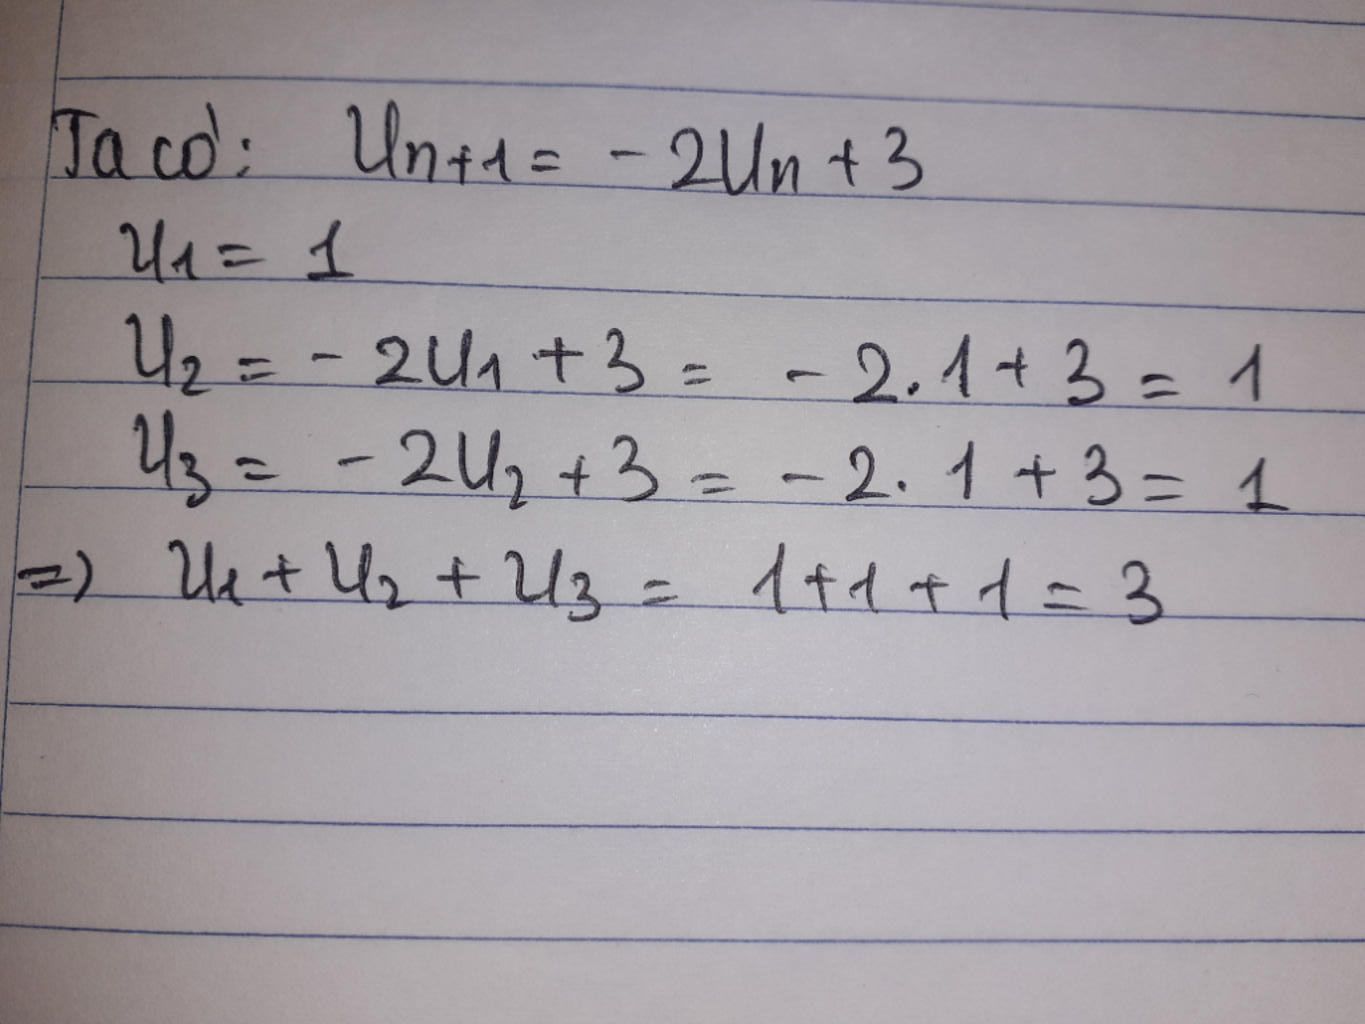 Ta có: Un+1 = -2Un + 3
U1 = 1
U2 = -2U1 + 3 = -2.1 + 3 = 1
U3 = -2U2 + 3 = -2.1 + 3 = 1
=) U1 + U2 + U3 = 1+1+1 = 3